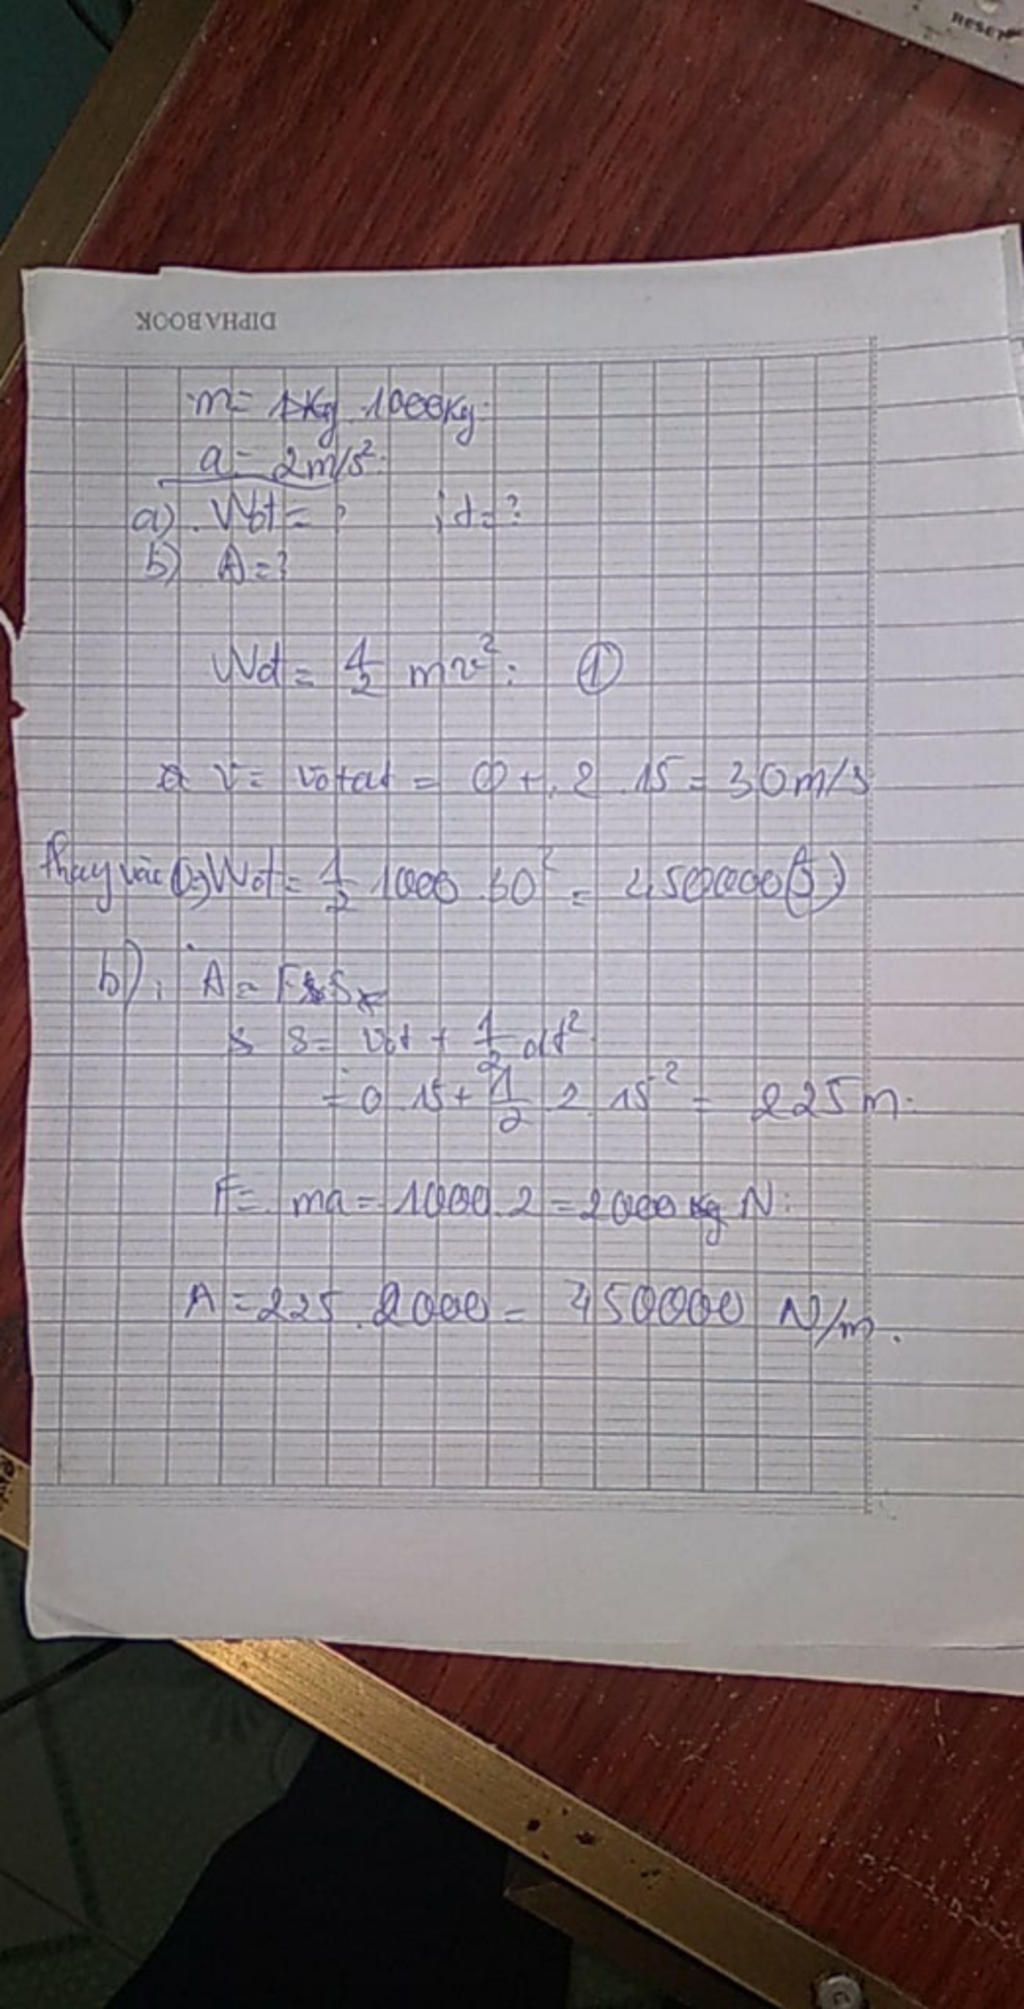 RESET
DIPHABOOK
m = 1Kg 1000Kg.
a = 2m/s².
a). Wđt = ? ; t = ?
b) A = ?
Wđ = 1/2 mv²: ①
v = v0 + at = 0 + 2 . 15 = 30 m/s
thay vào (1) => Wđ = 1/2 1000 . 30² = 450000 (J)
b). A = F . S
S = v0t + 1/2 at²
= 0 . 15 + 1/2 . 2 . 15² = 225 m.
F = ma = 1000 . 2 = 2000 kg N.
A = 225 . 2000 = 450000 N/m.